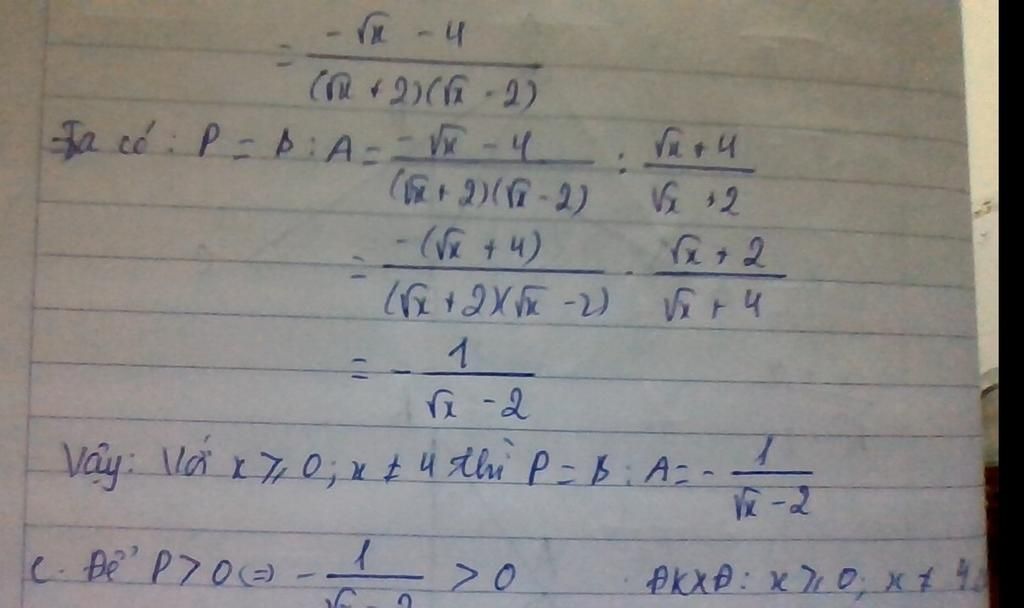 = (-√x - 4)/((√x + 2)(√x - 2))
Ta có: P = B : A = (-√x - 4)/((√x + 2)(√x - 2)) : (√x + 4)/(√x + 2)
= (-(√x + 4))/((√x + 2)(√x - 2)) . (√x + 2)/(√x + 4)
= - 1/(√x - 2)
Vậy: Với x ≥ 0; x ≠ 4 thì P = B : A = - 1/(√x - 2)
c. Để P > 0 (=) - 1/(√x - 2) > 0 ĐKXĐ: x ≥ 0; x ≠ 4